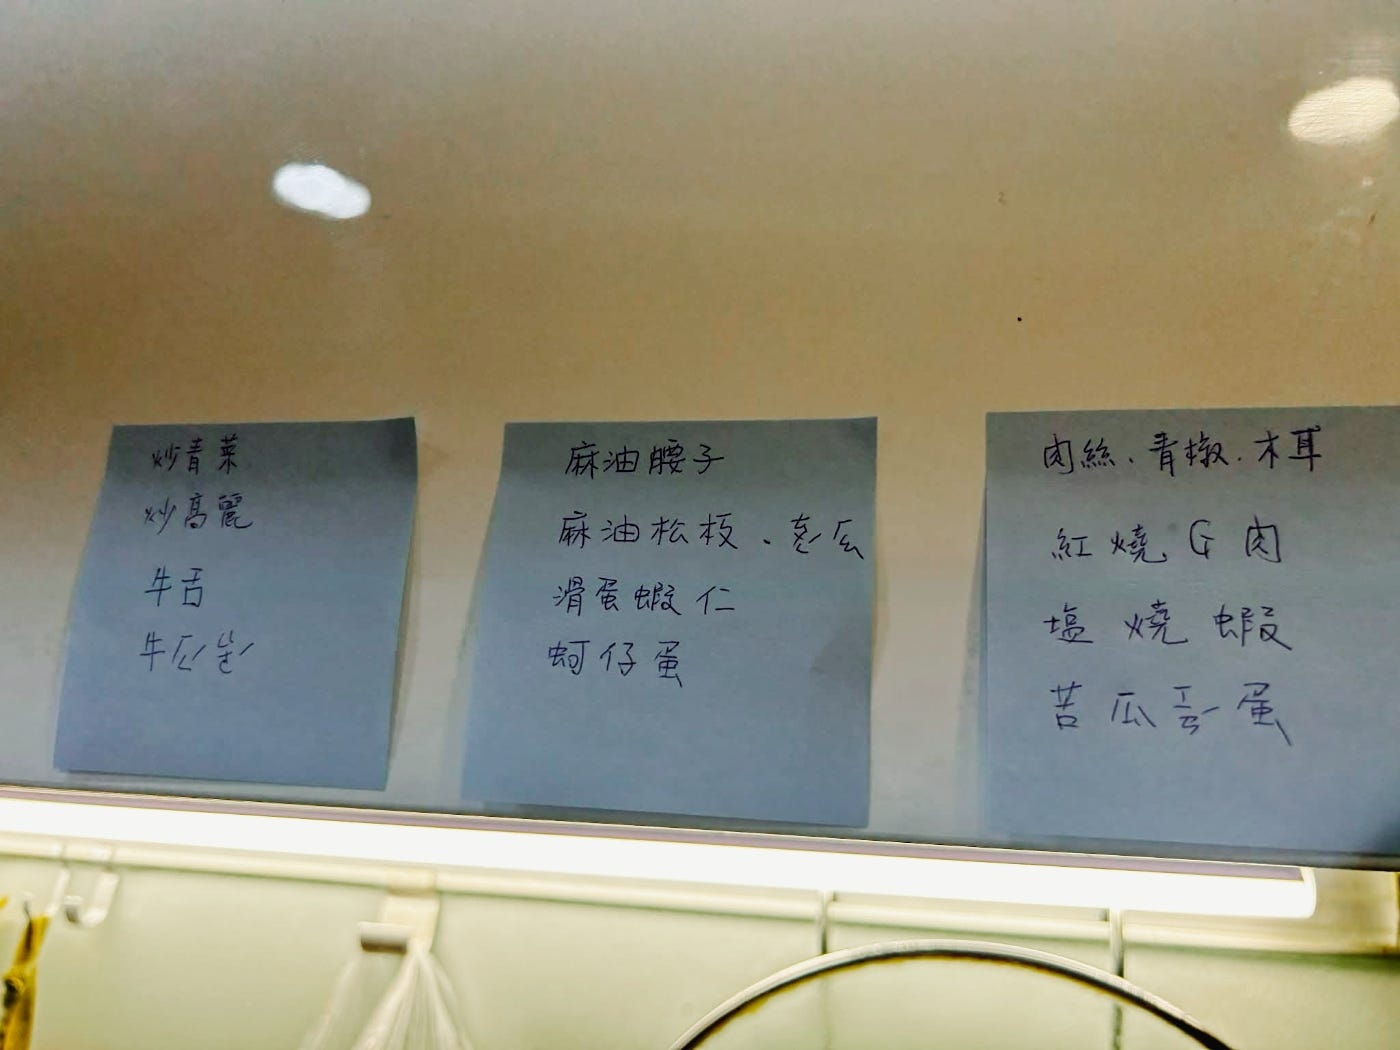 炒青菜
炒高麗
牛舌
牛
麻油腰子
麻油松板、
滑蛋蝦仁
蚵仔蛋
肉絲、青椒、木耳
紅燒牛肉
塩燒蝦
苦瓜 蛋